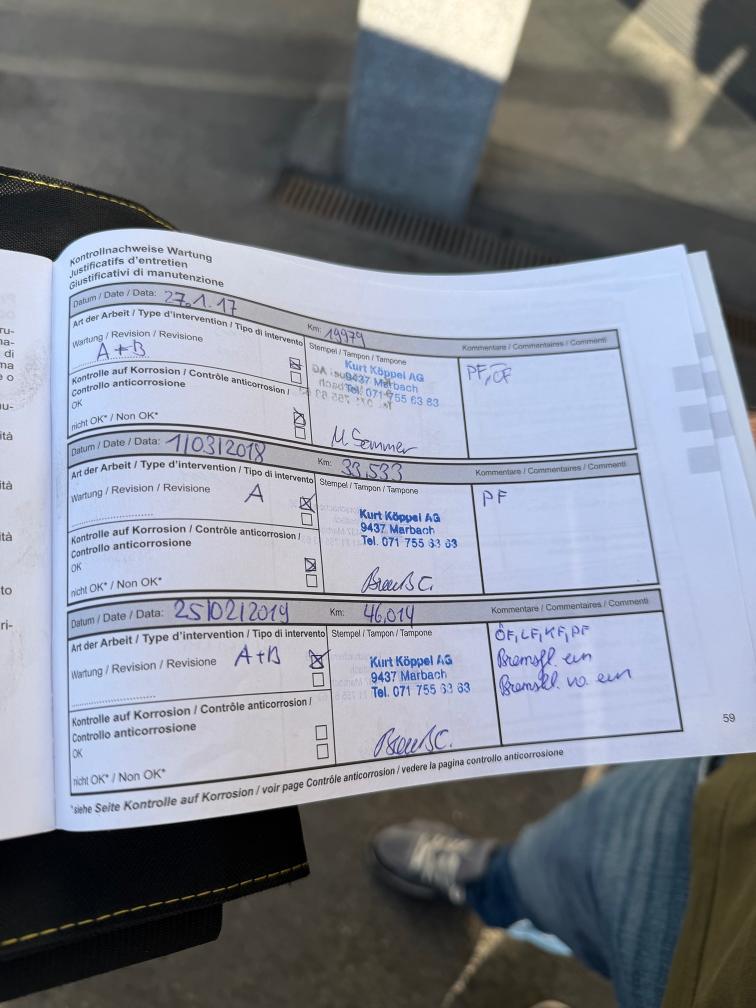 Kontrollnachweise Wartung
Justificatifs d'entretien
Giustificativi di manutenzione
Datum / Date / Data: 27.1.17 Km: 19979
Art der Arbeit / Type d'intervention / Tipo di intervento
Stempel / Tampon / Tampone
Kommentare / Commentaires / Commenti
Wartung / Revision / Revisione
A+B
Kurt Köppel AG
9437 Marbach
Tel. 071 755 63 63
PF,
Kontrolle auf Korrosion / Contrôle anticorrosion /
Controllo anticorrosione
OK
nicht OK* / Non OK*
M. Sommer
Datum / Date / Data: 1/03/2018 Km: 33,533
Art der Arbeit / Type d'intervention / Tipo di intervento
Stempel / Tampon / Tampone
Kommentare / Commentaires / Commenti
Wartung / Revision / Revisione A
PF
Kurt Köppel AG
9437 Marbach
Tel. 071 755 63 63
Kontrolle auf Korrosion / Contrôle anticorrosion /
Controllo anticorrosione
OK
nicht OK* / Non OK*
Datum / Date / Data: 25/02/2019 Km: 46,014
Art der Arbeit / Type d'intervention / Tipo di intervento
Stempel / Tampon / Tampone
Kommentare / Commentaires / Commenti
Wartung / Revision / Revisione A+B
ÖF, LF, KF, PF
Bremsfl. ein
Bremskl. va ein
Kurt Köppel AG
9437 Marbach
Tel. 071 755 63 63
Kontrolle auf Korrosion / Contrôle anticorrosion /
Controllo anticorrosione
OK
nicht OK* / Non OK*
*siehe Seite Kontrolle auf Korrosion / voir page Contrôle anticorrosion / vedere la pagina controllo anticorrosione
59